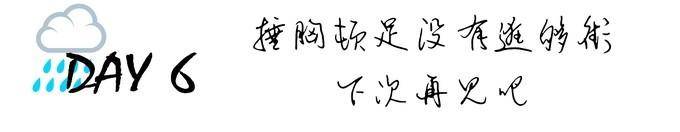 DAY 6
捶胸顿足没有逛够街
下次再见吧